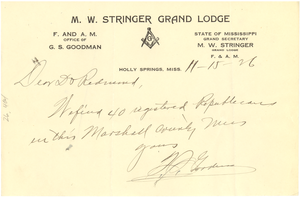 M. W. STRINGER GRAND LODGE
F. AND A. M.
OFFICE OF
G. S. GOODMAN
STATE OF MISSISSIPPI
GRAND SECRETARY
M. W. STRINGER
GRAND LODGE
F. & A. M.
HOLLY SPRINGS, MISS. 11-15-26
Dear Dr Redmond,
We find 40 registered Republicans
in this Marshall County, Miss
yours
G. S. Goodman